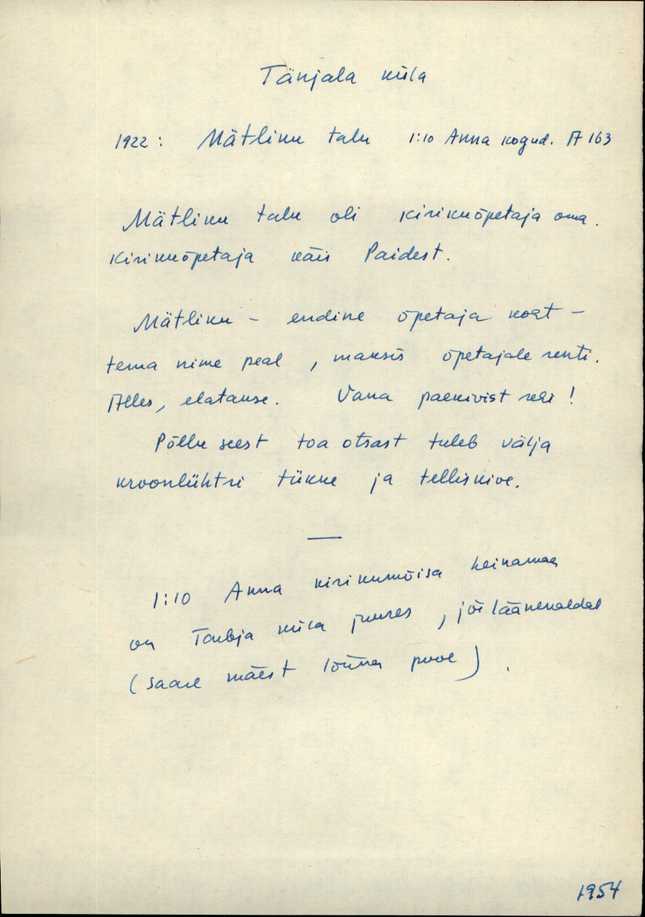 Tänjala küla
1922: Mätliku talu 1:10 Anna kogud. A 163
Mätliku talu oli kirikuõpetaja oma.
Kirikuõpetaja käis Paidest.
Mätliku - endine õpetaja koht -
tema nime peal, maksis õpetajale renti.
Alles, elatakse. Vana paekivist rehi!
Põllu seest toa otsast tuleb välja
kroonlühtri tükke ja telliskive.
1:10 Anna kirikumõisa heinamaa
on Toubja küla juures, jõe läänekaldal
(Saare mäest lõuna pool).
1954